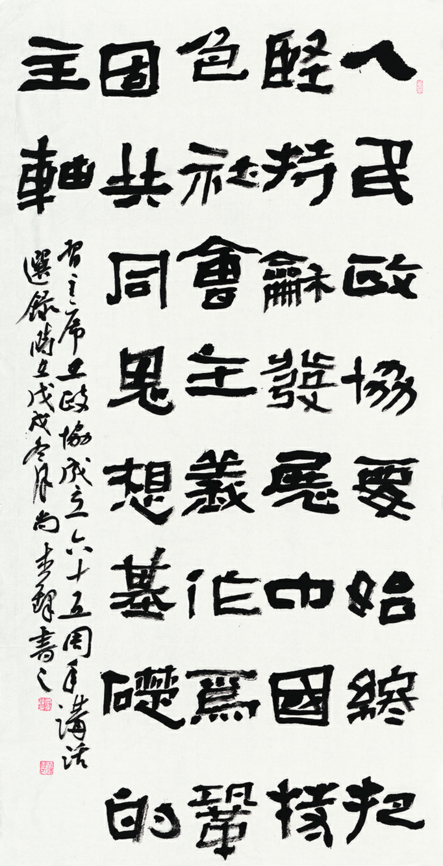 人民政協要始終把
堅持龢發展中國特
色社會主義作爲鞏
固共同思想基礎的
主軸
習主席在政協成立六十五周年講話
選錄 在戊戌冬月尚 書之